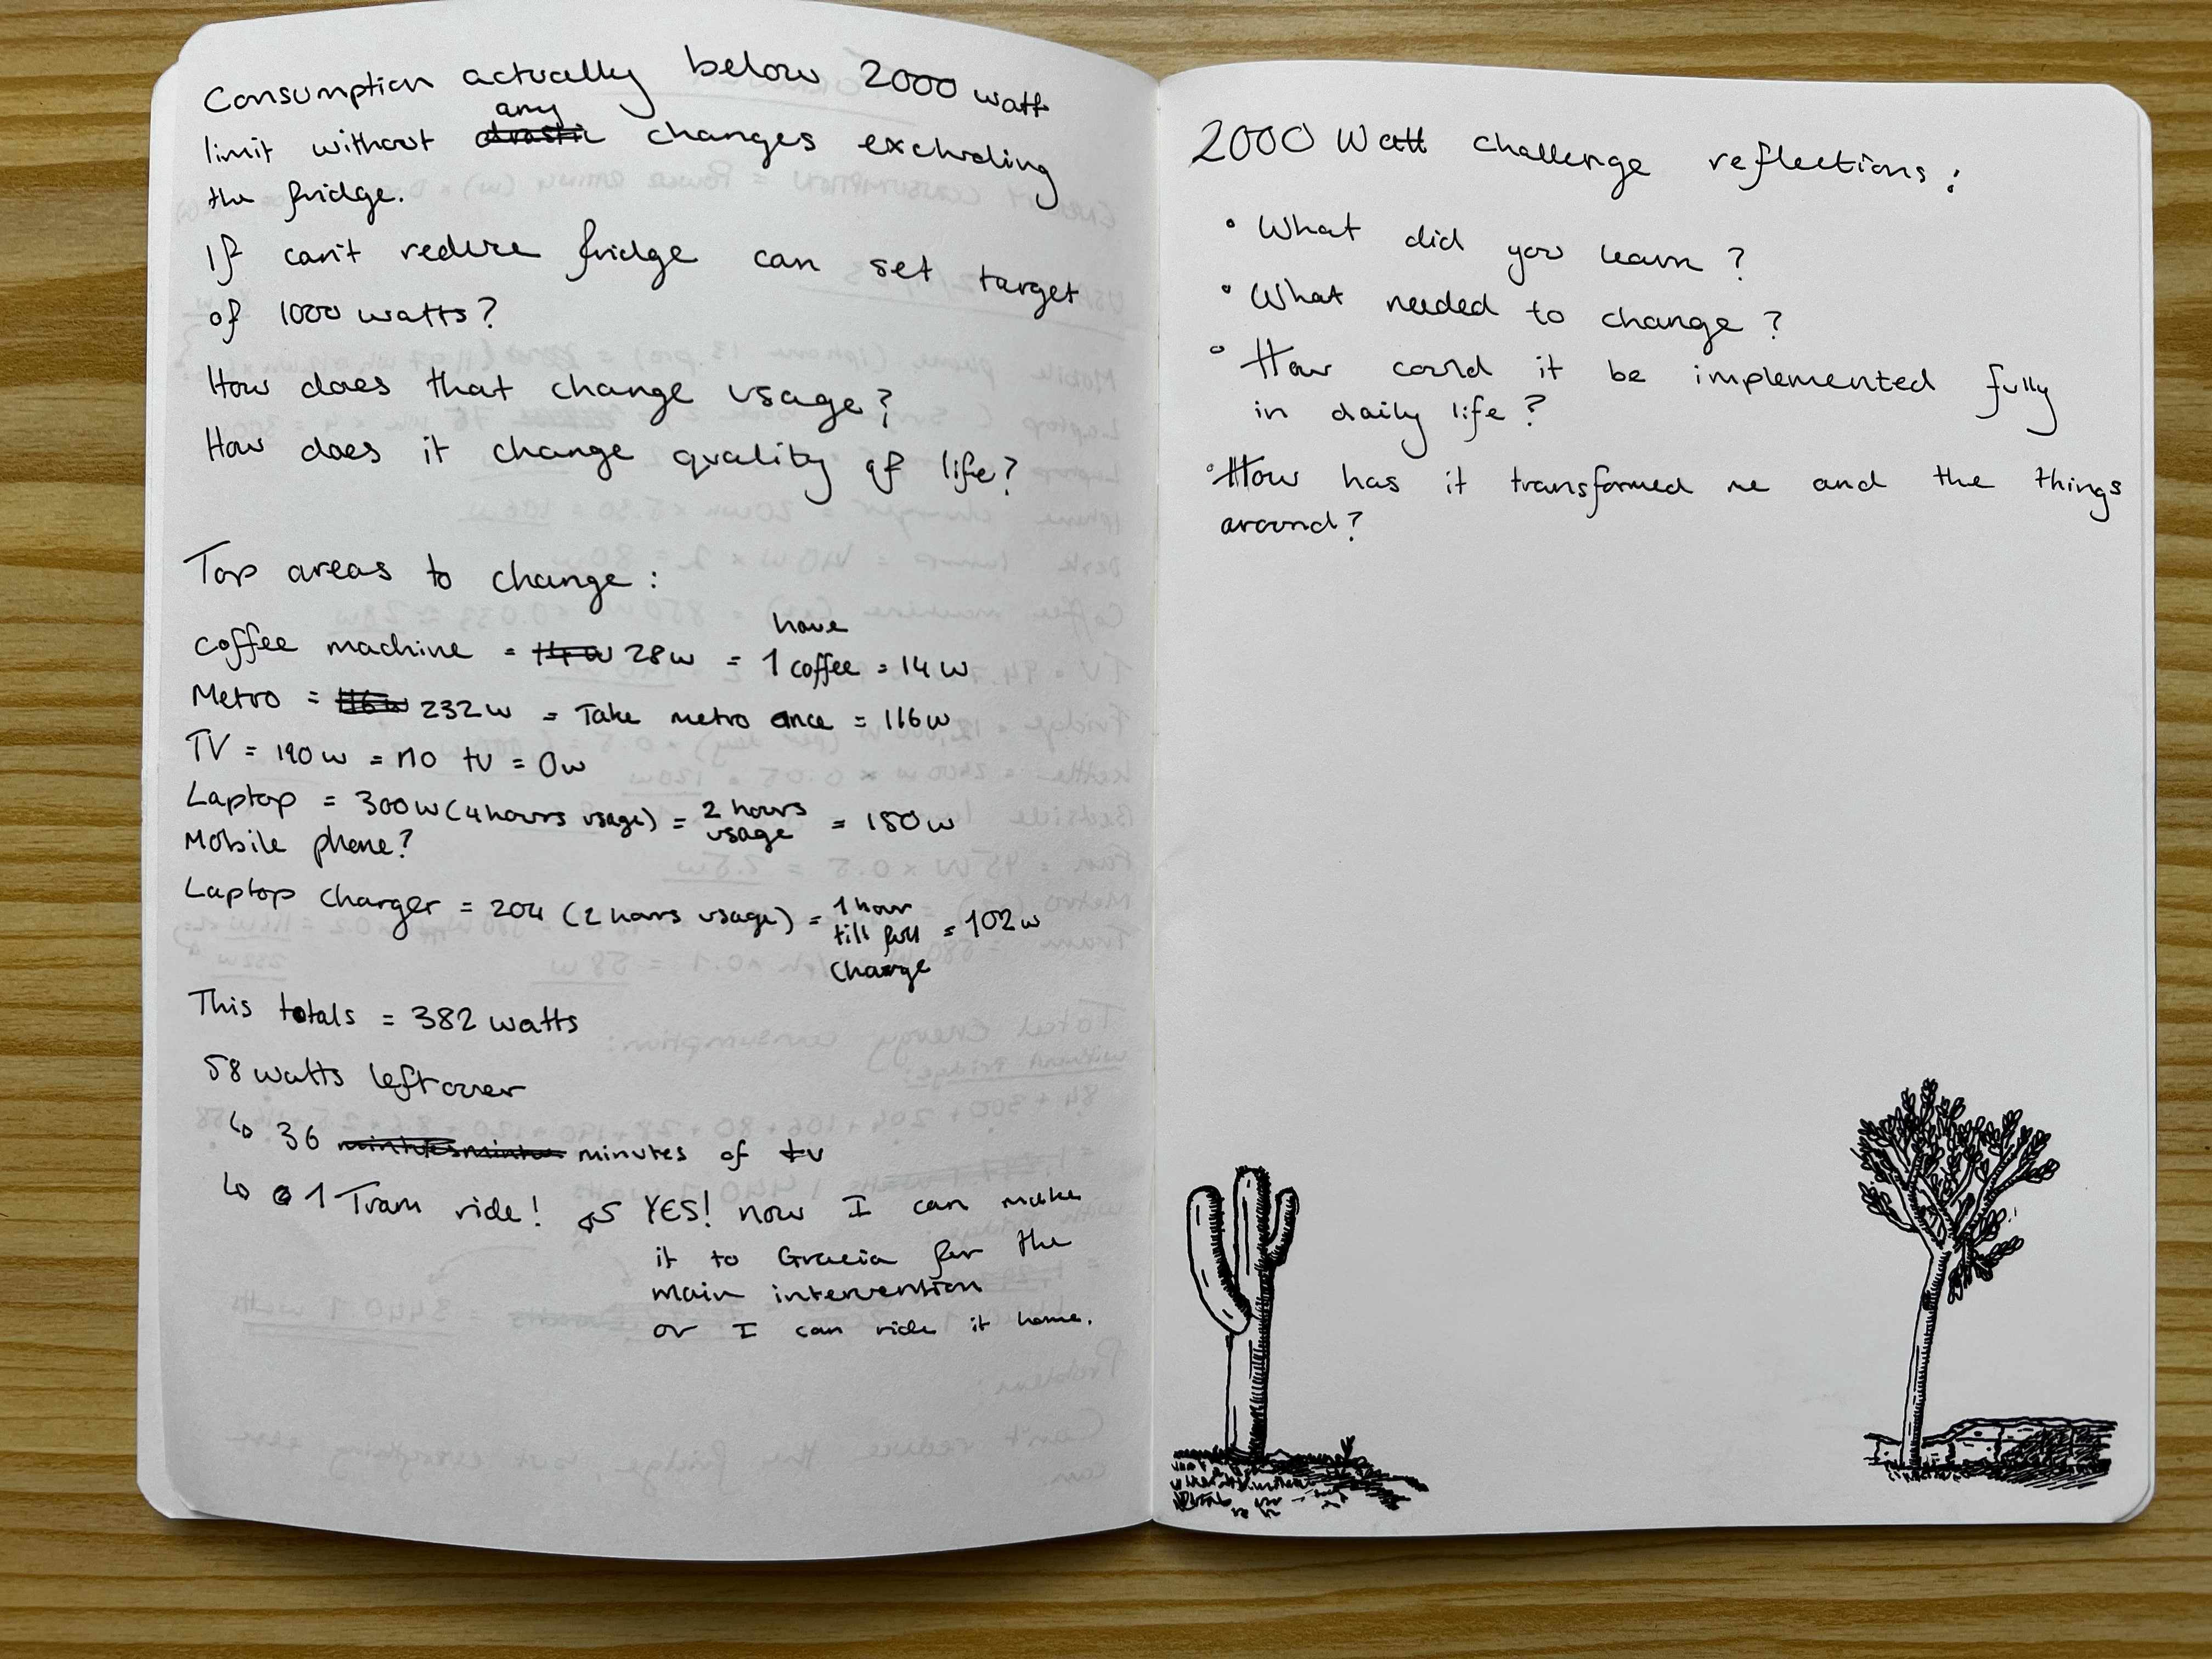 Consumption actually below 2000 watt
any
limit without drastic changes excluding
the fridge.
If can't reduce fridge can set target
of 1000 watts?
How does that change usage?
How does it change quality of life?
Top areas to change:
have
coffee machine = 28w = 1 coffee = 14w
Metro = 116w 232w = Take metro once = 116w
TV = 190w = no tv = 0w
Laptop = 300w (4 hours usage) = 2 hours usage = 150w
Mobile phone?
Laptop charger = 204 (2 hours usage) = 1 hour till full charge = 102w
This totals = 382 watts
58 watts leftover
↳ 36 minutes of tv
↳ 1 Tram ride! YES! now I can make
it to Gracia for the
main intervention
or I can ride it home.
2000 Watt challenge reflections:
• What did you learn?
• What needed to change?
• How could it be implemented fully
in daily life?
• How has it transformed me and the things
around?